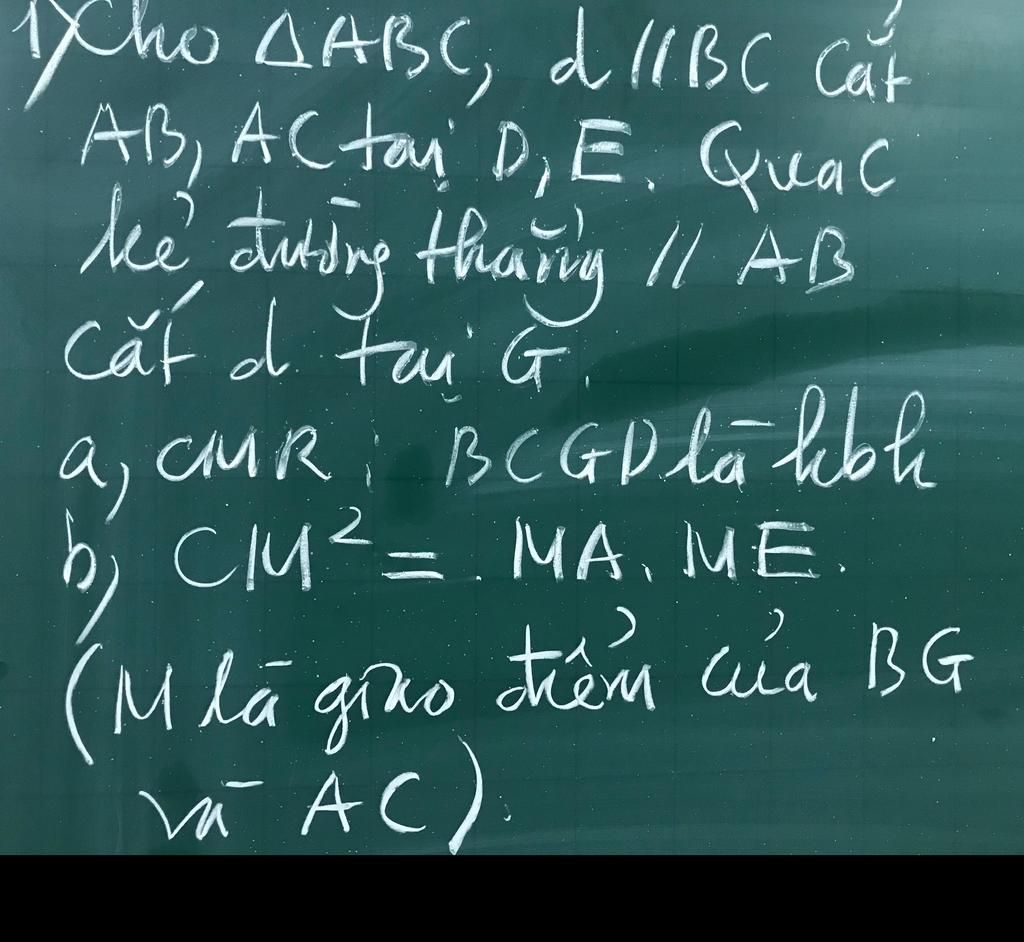 1) Cho ΔABC, d // BC cắt
AB, AC tại D, E. Qua C
kẻ đường thẳng // AB
cắt d tại G.
a, CMR: BCGD là hbh
b, CM² = MA. ME.
(M là giao điểm của BG
và AC).